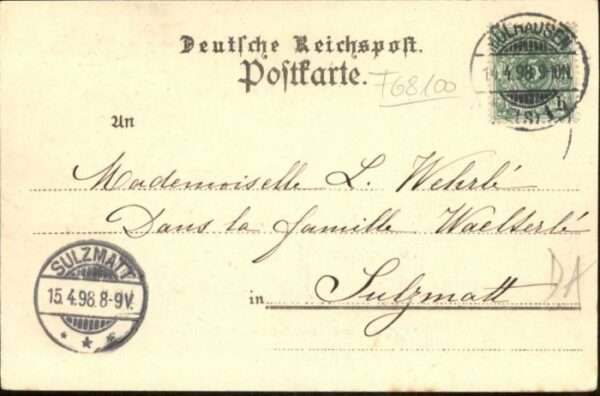 Deutsche Reichspost.
Postkarte.
F68100
MÜLHAUSEN
14.4.98
(ELS)
1 b
An
Mademoiselle L. Wehrlé
Dans la famille Waelterlé
in Sulzmatt
DA
SULZMATT
15.4.98.8-9V.
* * *